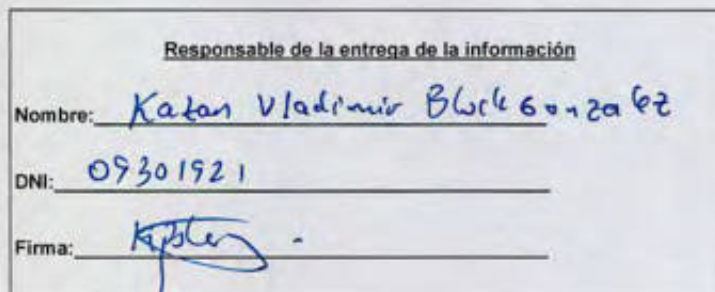 Responsable de la entrega de la información
Nombre: Katan Vladimir Block Gonzalez
DNI: 09301921
Firma: